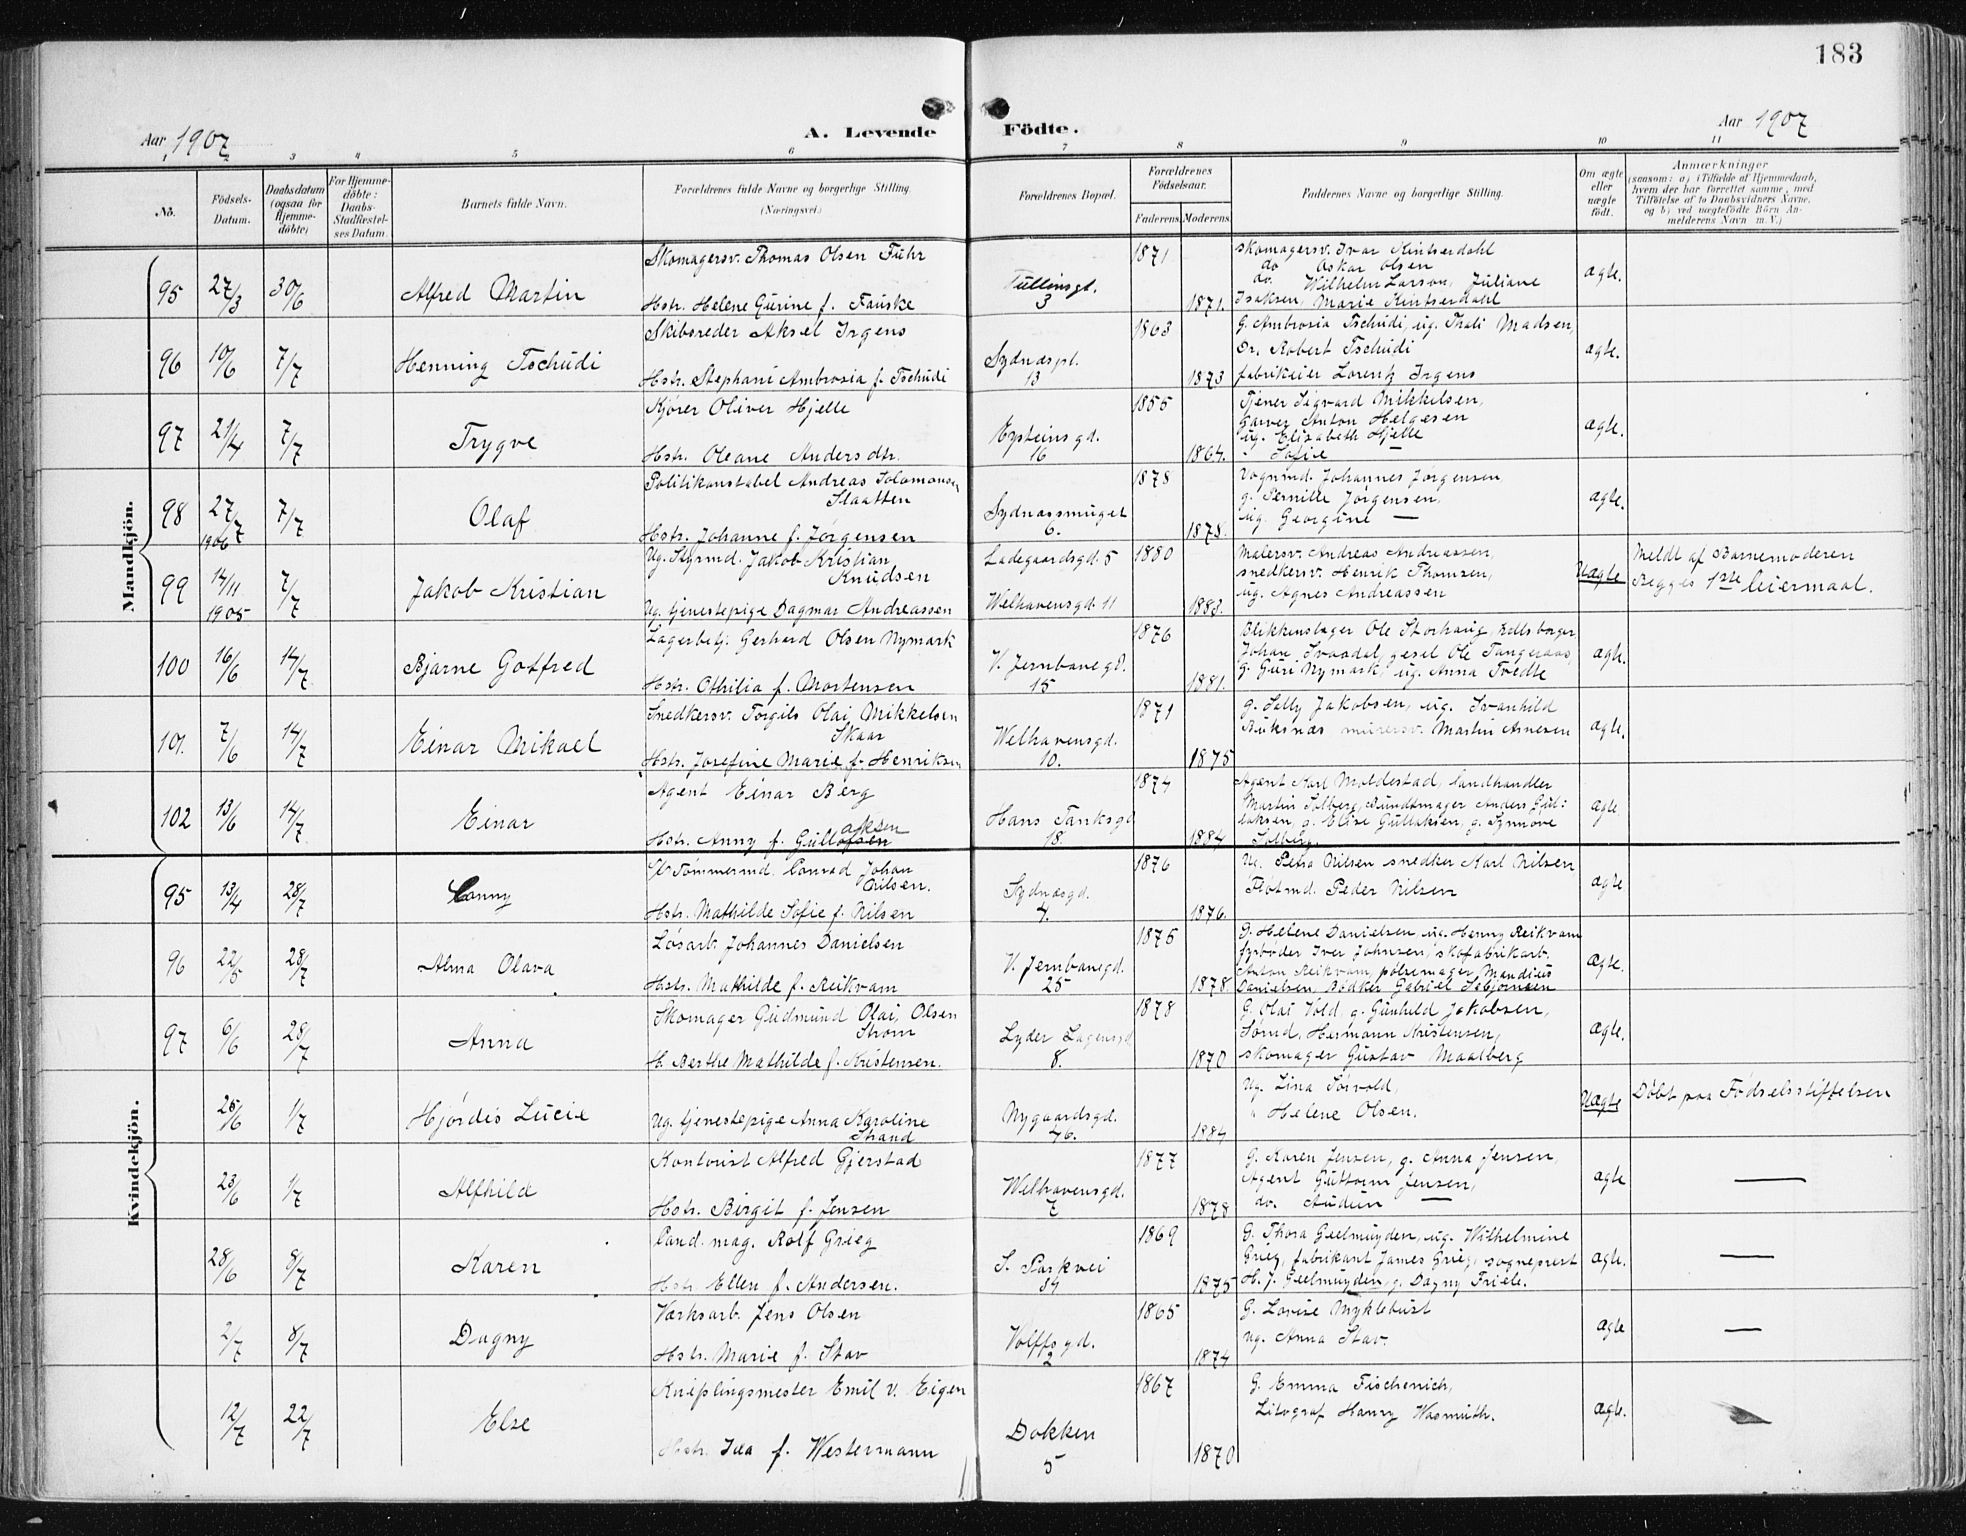 183
Aar 1907
A. Levende Födte.
Aar 1907
1 2 3 4 5 6 7 8 9 10 11
No.
Födsels-Datum.
Daabsdatum (ogsaa for Hjemme-döbte)
For Hjemme-döbte: Daabs-Stadfæstel-ses Datum.
Barnets fulde Navn.
Forældrenes fulde Navne og borgerlige Stilling.
(Næringsvei.)
Forældrenes Bopæl.
Forældrenes Födselsaar.
Faderens. Moderens.
Faddernes Navne og borgerlige Stilling.
Om ægte eller uægte födt.
Anmærkninger
(saasom: a) i Tilfælde af Hjemmedaab, hvem der har forrettet samme, med Tilföielse af to Daabsvidners Navne, og b) ved uægtefödte Börn An-melderens Navn m. V.)
Mandkjön.
95 27/3 30/6 Alfred Martin
Skomagersv. Thomas Olsen Fuhr
Hstr. Helene Gurine f. Fauske
Tullinsgt. 3
1871 1871.
Skomagersv. Ivar Kintserdahl
do Oskar Olsen
do. Wilhelm Larson, Juliane
Isaksen, Marie Kintserdahl
ægte.
96 10/6 7/7 Henning Tschudi
Skibsreder Aksel Irgens
Hstr. Stephani Ambrosia f. Tschudi
Sydnæspl. 13
1863 1873
G. Ambrosia Tschudi, ug. Thali Madsen,
Dr. Robert Tschudi
fabrikeier Lorentz Irgens
ægte.
97 21/4 7/7 Trygve
Kjører Oliver Hjelle
Hstr. Oleane Andersdtr.
Eysteinsgd. 16
1855 1864.
Tjener Sigvard Mikkelsen,
garver Anton Helgesen
ug. Elisabeth Hjelle
" Sofie —
ægte.
98 27/7 1906 7/7 Olaf
Politikonstabel Andreas Solomonsen
Slaatten
Hstr. Johanne f. Jørgensen
Sydnæssmuget 6.
1878 1878.
Vognmd. Johannes Jørgensen
g. Pernille Jørgensen,
ug. Georgine —
ægte.
99 14/11 1905 7/7 Jakob Kristian
Ug. Styrmd. Jakob Kristian
Knudsen
Ug. tjenestepige Dagmar Andreassen
Ladegaardsgd. 5
Welhavensgd. 11
1880 1883.
Malersv. Andreas Andreassen,
snedkersv. Henrik Thomsen,
ug. Agnes Andreassen
Uægte
Meldt af Barnemoderen
Begges 1ste leiermaal.
100 16/6 14/7 Bjarne Gotfred
Lagerbetj. Gerhard Olsen Nymark
Hstr. Othilia f. Mortensen
V. Jernbanegd. 15
1876 1881.
Blikkenslager Ole Storhaug,
Johan Svaadal, gesel Ole Tangeraas,
G. Guri Nymark, ug. Anna Tvedte
ægte.
101. 7/6 14/7 Einar Mikael
Snedkersv. Torgils Olai Mikkelsen
Skaar
Hstr. Josefine Marie f. Henriksen
Welhavensgd. 10.
1871 1875
g. Sally Jakobsen, ug. Svanhild
Buksnæs murersv. Martin Arnesen
ægte.
102 13/6 14/7 Einar
Agent Einar Berg
aksen
Hstr. Anny f. Gullofsen
Hans Tanksgd 18.
1874 1884
Agent Karl Moldestad, landhandler
Martin Solberg, Bundtmager Anders Gul:
laksen, g. Elise Gullaksen, g. Synnøve
Solberg.
ægte
Kvindekjön.
95 13/4 28/7 Conny
Tømmermd. Conrad Johan
Nilsen.
Hstr. Mathilde Sofie f. Nilsen
Sydnæsgd. 4.
1876 1876.
Ug. Petra Nilsen snedker Karl Nilsen
Fløtmd. Peder Nilsen
ægte
96 22/5 28/7 Alma Olava
Løsarb. Johannes Danielsen
Hstr. Mathilde f. Reikvam
V. Jernbanegd. 25
1875 1878.
G. Helene Danielsen, ug. Henny Reikvam
fyrbøder Iver Johnsen, skofabrikarb.
Anton Reikvam, pølsemager Mandius
Danielsen Bødker Gabriel Isbjørnsen
ægte.
97 6/6 28/7 Anna
Skomager Gudmund Olai Olsen
Strøm
H. Berthe Mathilde f. Kristensen.
Lyder Sagensgd 8.
1878 1870
G. Olai Vold, g. Gunhild Jakobsen,
Sømd. Hermann Kristensen,
skomager Gustav Maalberg
ægte.
25/6 1/7 Hjørdis Lucie
Ug. tjenestepige Anna Karoline
Strand
Nygaardsgd. 46.
1884
Ug. Lina Sørvold,
" Helene Olsen.
Uægte
Døbt paa Fødselsstiftelsen
23/6 1/7 Alfhild
Kontorist Alfred Gjerstad
Hstr. Birgit f. Jensen
Welhavensgd. 7
1877 1878
G. Karen Jensen, g. Anna Jensen,
Agent Guttorm Jensen,
do. Audun —
ægte —
28/6 8/7 Karen
Cand. mag. Rolf Grieg
Hstr Ellen f. Andersen.
S. Parkvei 34
1869 1875
G. Thora Geelmuyden, ug. Wilhelmine
Grieg, fabrikant James Grieg, sogneprest
H. J. Geelmuyden, g. Dagny Friele.
ægte. —
2/7 8/7 Dagny
Værksarb. Jens Olsen
Hstr. Marie f. Stav
Wolffsgd. 2
1865 1874
G. Lovise Myklebust
ug. Anna Stav.
ægte —
12/7 22/7 Else
Kniplingsmester Emil v. Eigen
Hstr. Ida f. Westermann
Dokken 5
1867 1870
G. Emma Fischenich,
Litograf Hanry Wasmuth.
ægte.